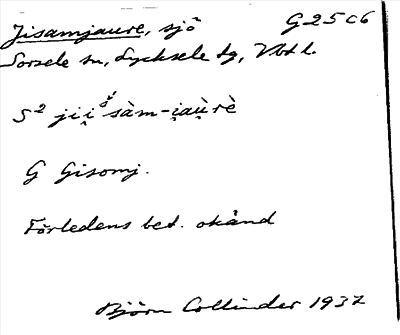 Jisamjaure, sjö G25c6
Sorsele sn, Lycksele tg, Vbtl.
S² ji̯i̯ŏ́sàm-i̯au̯rè
G Gisomj.
Förledens bet. okänd
Björn Collinder 1937